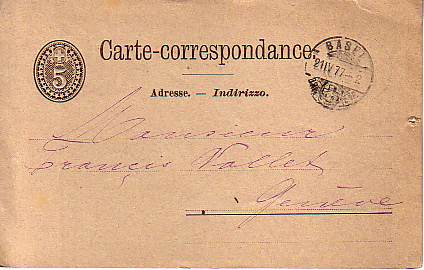 5
Carte-correspondance.
BASEL
21 IV 77 – 2
Adresse. — Indirizzo.
Monsieur
Francis Vallet
Genève